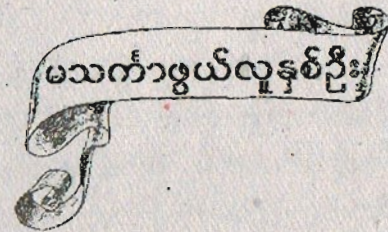 မသင်္ကာဖွယ်လူနှစ်ဦး